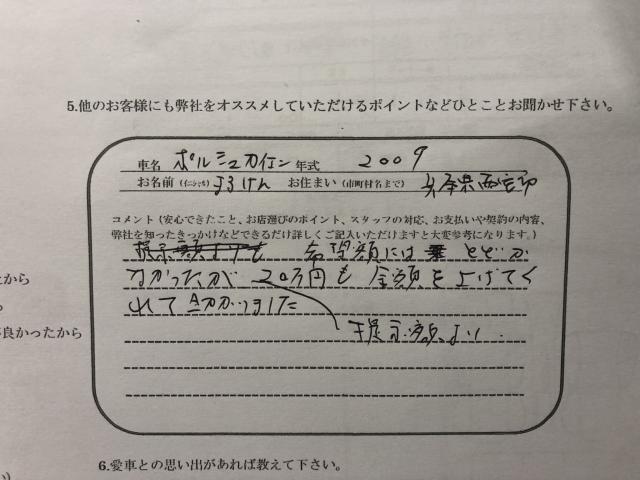 5.他のお客様にも弊社をオススメしていただけるポイントなどひとことお聞かせ下さい。
車名 ポルシェカイエン 年式 2009
お名前(イニシャルも可) まるけん お住まい(市町村名まで) 兵庫県西宮市
コメント(安心できたこと、お店選びのポイント、スタッフの対応、お支払いや契約の内容、
弊社を知ったきっかけなどできるだけ詳しくご記入いただけますと大変参考になります。)
希望額には とどか
なかったが 20万円も 金額を上げてく
れて 助かりました
提示額より
から
良かったから
6.愛車との思い出があれば教えて下さい。